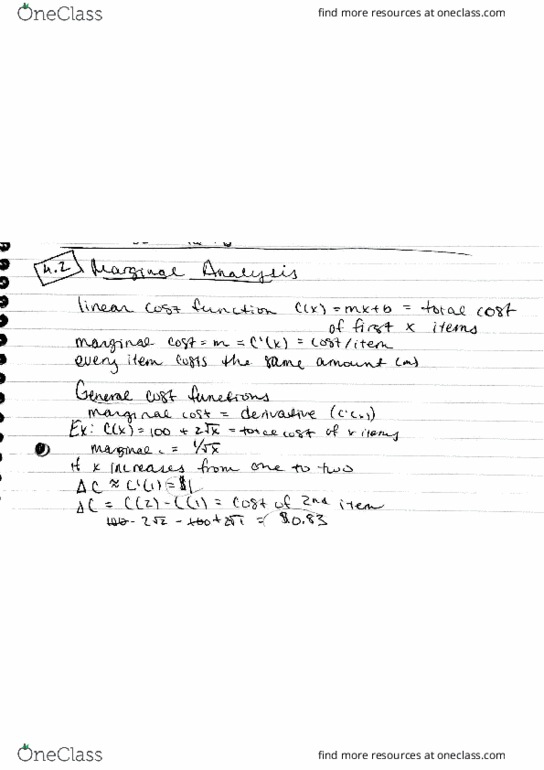 OneClass
find more resources at oneclass.com
4.2 Marginal Analysis
linear cost function C(x) = mx+b = total cost
of first x items
marginal cost = m = C'(x) = cost/item
every item costs the same amount (m)
General cost functions
marginal cost = derivative (C'(x))
Ex: C(x) = 100 + 2√x = total cost of x items
marginal c = 1/√x
if x increases from one to two
ΔC ≈ C'(1) = $1
ΔC = C(2) - C(1) = cost of 2nd item
100 - 2√2 - 100 + 2√1 = $0.83
OneClass
find more resources at oneclass.com